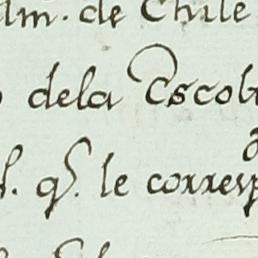 dm. de Chile
dela Escob
f. qᵉ. le corresp